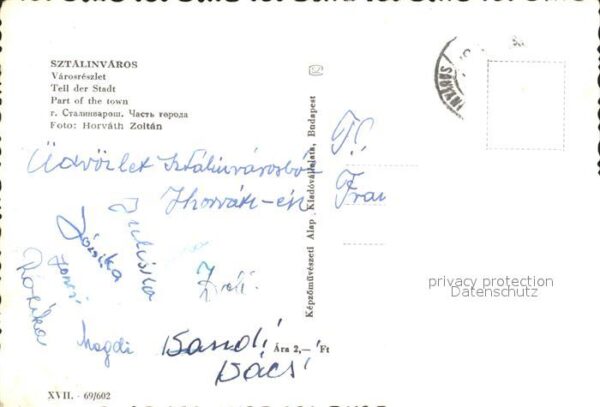 SZTÁLINVÁROS
Városrészlet
Teil der Stadt
Part of the town
г. Сталинварош. Часть города
Foto: Horváth Zoltán
Üdvözlet Sztálinvárosból
Horváth-én
T.C.
Frau
Juliska
Józsika
Jancsi
Rózsika
Magdi
Zoli.
Bandi
bácsi
Képzőművészeti Alap Kiadóvállalata, Budapest
Ára 2,— Ft
XVII. - 69/602
privacy protection
Datenschutz